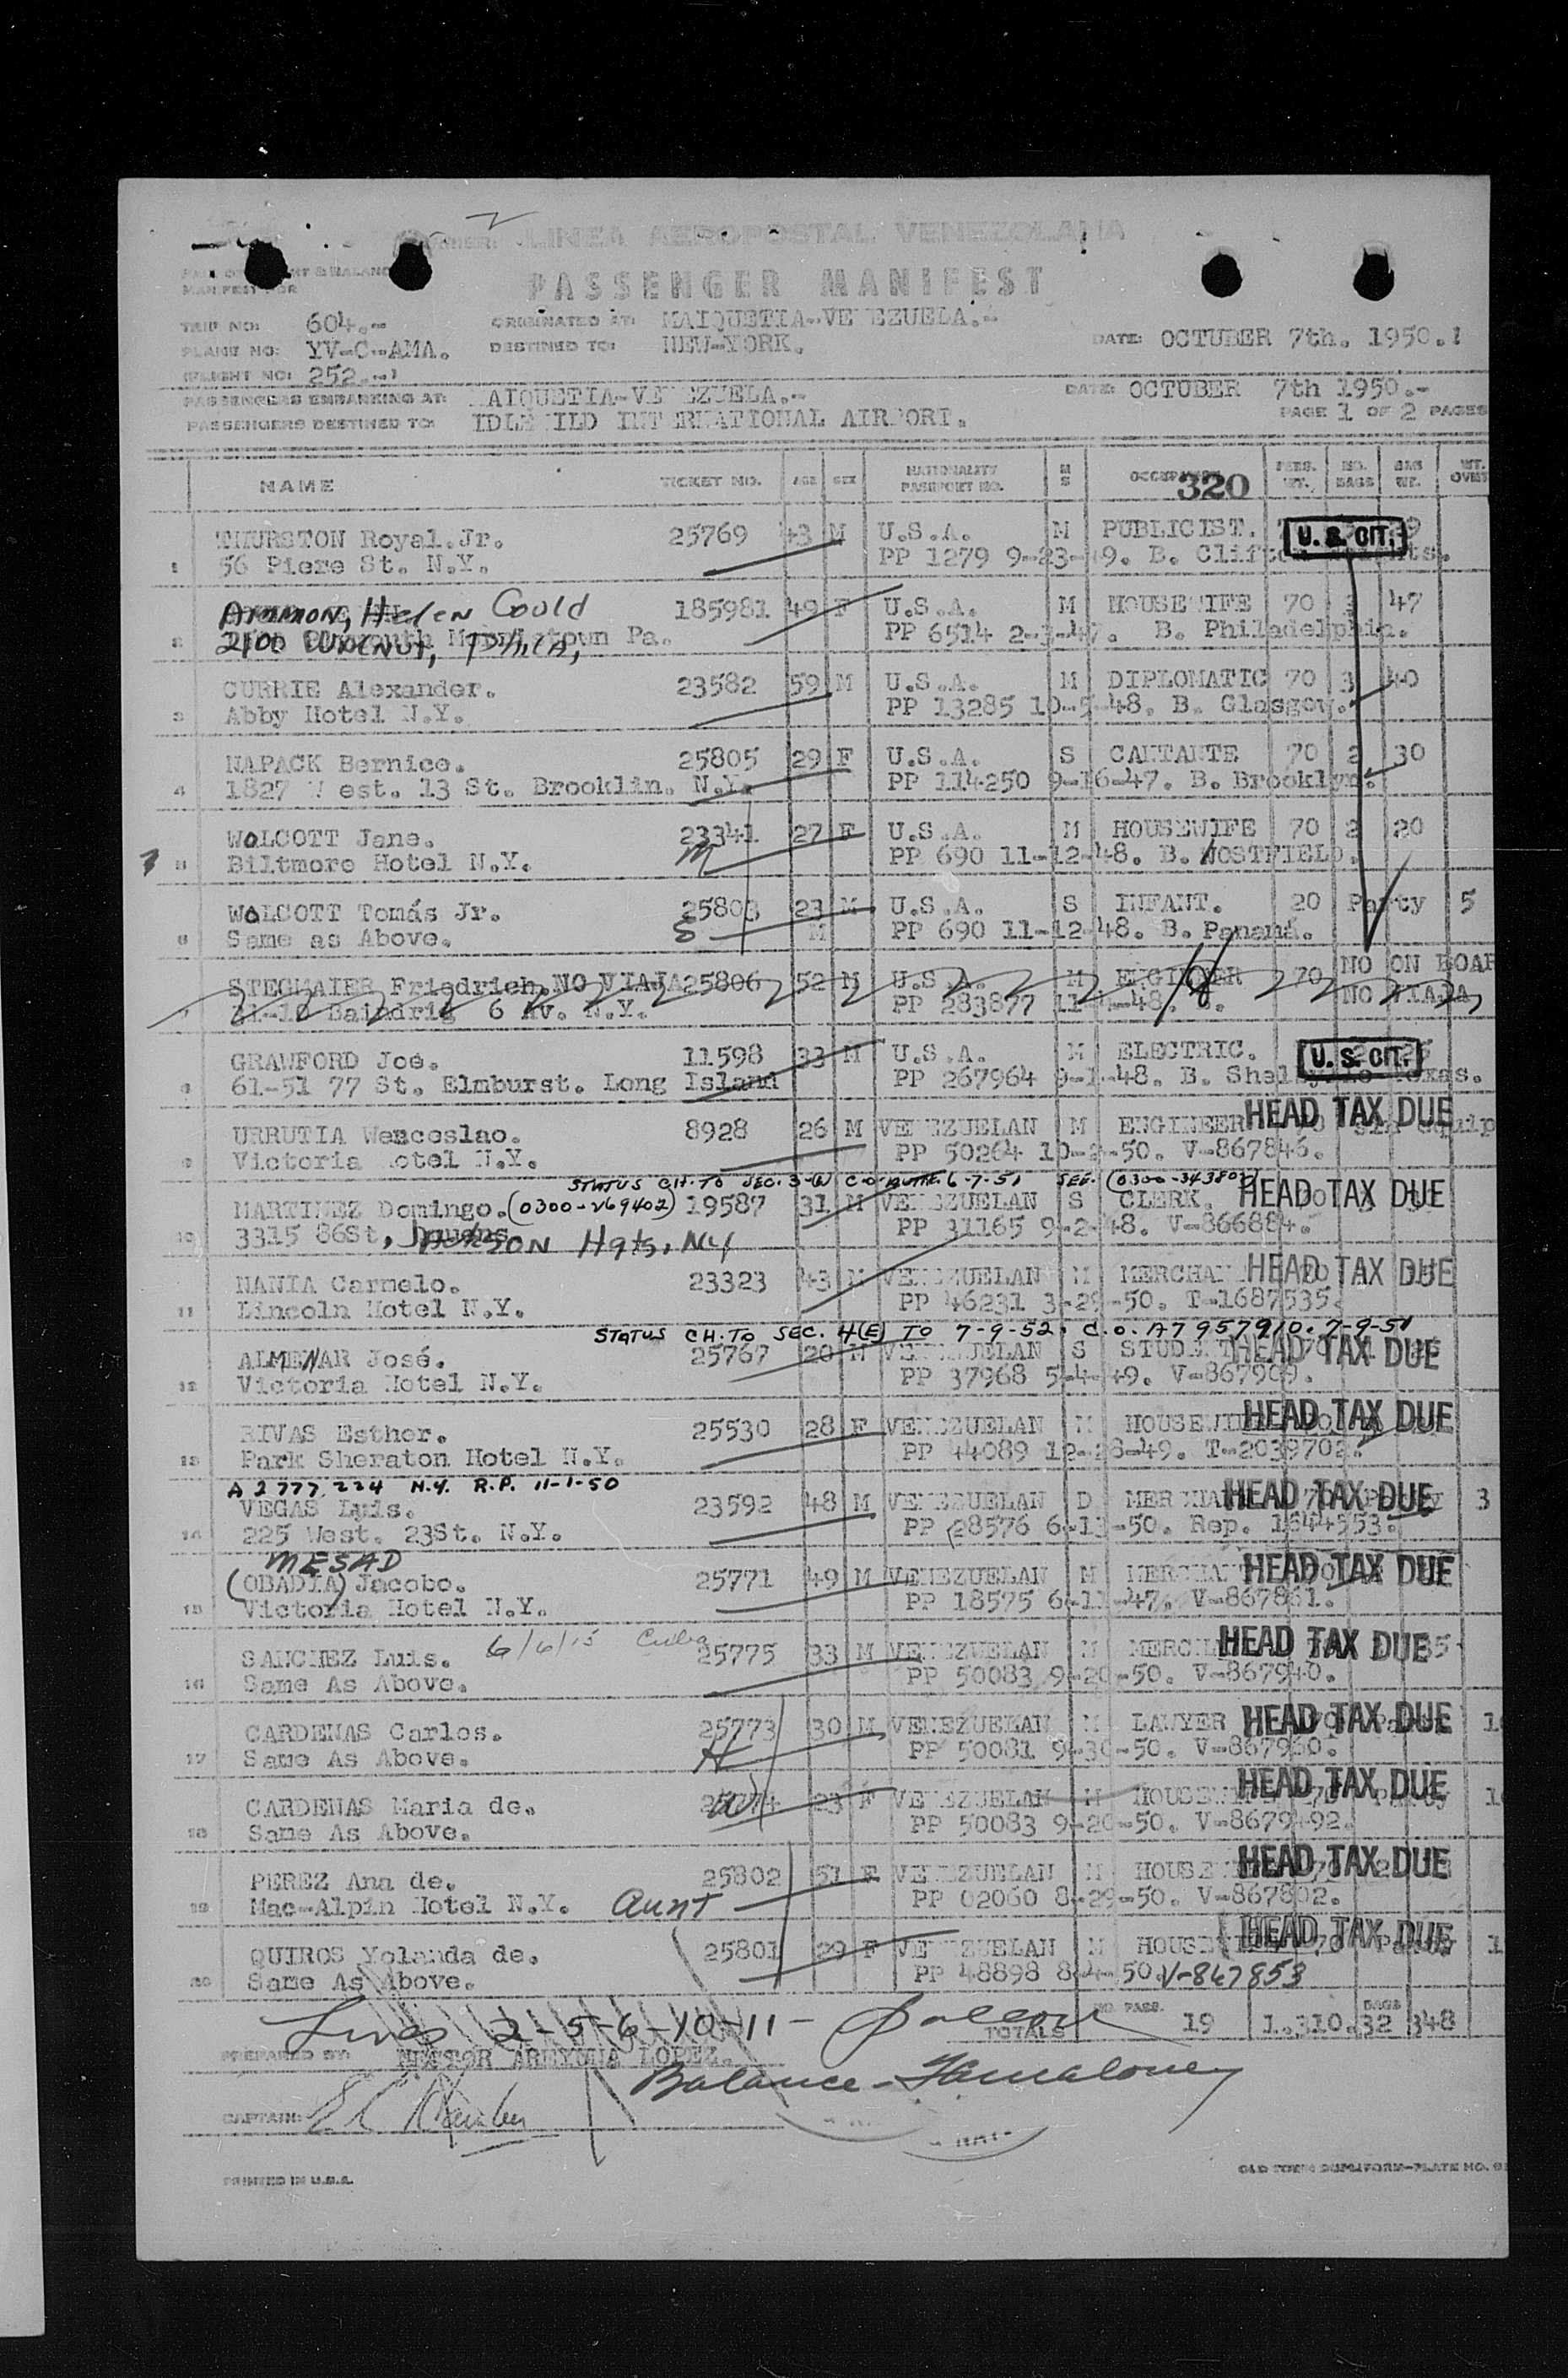 LINEA AEROPOSTAL VENEZOLANA
PASSENGER MANIFEST
TRIP NO: 604.- ORIGINATED AT: MAIQUETIA-VENEZUELA.-
PLANE NO: YV-C-AMA. DESTINED TO: NEW-YORK. DATE: OCTUBER 7th. 1950.
FLIGHT NO: 252.-
PASSENGERS EMBANKING AT: MAIQUETIA-VENEZUELA.- DATE: OCTUBER 7th 1950.-
PASSENGERS DESTINED TO: IDLEWILD INTERNATIONAL AIRPORT. PAGE 1 OF 2 PAGES
NAME TICKET NO. AGE SEX NATIONALITY PASSPORT NO. M S 320 PASS. WT. NO. BAGS BAG WT. WT. OVER
THURSTON Royal.Jr. 25769 43 M U.S.A. M PUBLICIST. U. S. CIT.
1 56 Piere St. N.Y. PP 1279 9-23-49. B. Clifton Heights.
AMMON, Helen Gould 185981 49 F U.S.A. M HOUSEWIFE 70 3 47
2 2100 WALNUT, PHILA, Pa. PP 6514 2-3-47. B. Philadelphia.
CURRIE Alexander. 23582 59 M U.S.A. M DIPLOMATIC 70 3 40
3 Abby Hotel N.Y. PP 13285 10-5-48. B. Glasgow.
NAPACK Bernice. 25805 29 F U.S.A. S CANTANTE 70 2 30
4 1827 West. 13 St. Brooklin. N.Y. PP 114250 9-16-47. B. Brooklyn.
WOLCOTT Jane. 23341 27 F U.S.A. M HOUSEWIFE 70 2 20
5 Biltmore Hotel N.Y. M PP 690 11-12-48. B. WOSTFIELD.
WOLCOTT Tomás Jr. 25803 23 M U.S.A. S INFANT. 20 Party 5
6 Same as Above. S M PP 690 11-12-48. B. Panamá.
STEGMAIER Friedrich.NO VIAJA 25806 52 M U.S.A. M ENGINEER 70 NO ON BOAR
7 6 Av. N.Y. PP 283877 11-4-48. B. NO VIAJA
CRAWFORD Joe. 11598 33 M U.S.A. M ELECTRIC. U. S. CIT.
8 61-51 77 St. Elmburst. Long Island PP 267964 9-1-48. B. Texas.
URRUTIA Wenceslao. 8928 26 M VENEZUELAN M ENGINEER HEAD TAX DUE
9 Victoria Hotel N.Y. PP 50264 10-2-50. V-867846.
STATUS CH. TO SEC. 3-(2) C.O. 6-7-51 SEE. (0300-343802)
MARTINEZ Domingo. (0300-269402) 19587 31 M VENEZUELAN S CLERK. HEAD TAX DUE
10 3315 86St, JACKSON Hgts, NY PP 31165 9-2-48. V-866884.
NANIA Carmelo. 23323 43 M VENEZUELAN M MERCHANT HEAD TAX DUE
11 Lincoln Hotel N.Y. PP 46231 3-29-50. T-1687535.
STATUS CH. TO SEC. 4(E) TO 7-9-52. C.O. A7957910. 7-9-51
ALMENAR José. 25767 20 M VENEZUELAN S STUDENT HEAD TAX DUE
12 Victoria Hotel N.Y. PP 37968 5-4-49. V-867909.
RIVAS Esther. 25530 28 F VENEZUELAN M HOUSEWIFE HEAD TAX DUE
13 Park Sheraton Hotel N.Y. PP 44089 12-28-49. T-2039702.
A 2 777 224 N.Y. R.P. 11-1-50
VEGAS Luis. 23592 48 M VENEZUELAN D MERCHANT HEAD TAX DUE 3
14 225 West. 23St. N.Y. PP 28576 6-13-50. Rep. 1644553.
MESAD
(OBADIA) Jacobo. 25771 49 M VENEZUELAN M MERCHANT HEAD TAX DUE
15 Victoria Hotel N.Y. PP 18575 6-11-47. V-867861.
SANCHEZ Luis. 6/6/15 Cuba 25775 33 M VENEZUELAN M MERCHANT HEAD TAX DUE
16 Same As Above. PP 50083 9-20-50. V-867940.
CARDENAS Carlos. 25773 30 M VENEZUELAN M LAWYER HEAD TAX DUE
17 Same As Above. H PP 50081 9-30-50. V-867960.
CARDENAS Maria de. 25774 23 F VENEZUELAN M HOUSEWIFE HEAD TAX DUE
18 Same As Above. W PP 50083 9-20-50. V-8679492.
PEREZ Ana de. 25802 51 F VENEZUELAN M HOUSEWIFE HEAD TAX DUE
19 Mac-Alpin Hotel N.Y. Aunt PP 02060 8-29-50. V-867802.
QUIROS Yolanda de. 25801 29 F VENEZUELAN M HOUSEWIFE HEAD TAX DUE
20 Same As Above. PP 48898 8-4-50. V-867853
Lines 2-5-6-10-11- TOTALS NO. PASS. 19 1.310. BAGS 32 348
PREPARED BY: NESTOR LOPEZ.
Balance-
CAPTAIN:
PRINTED IN U.S.A.